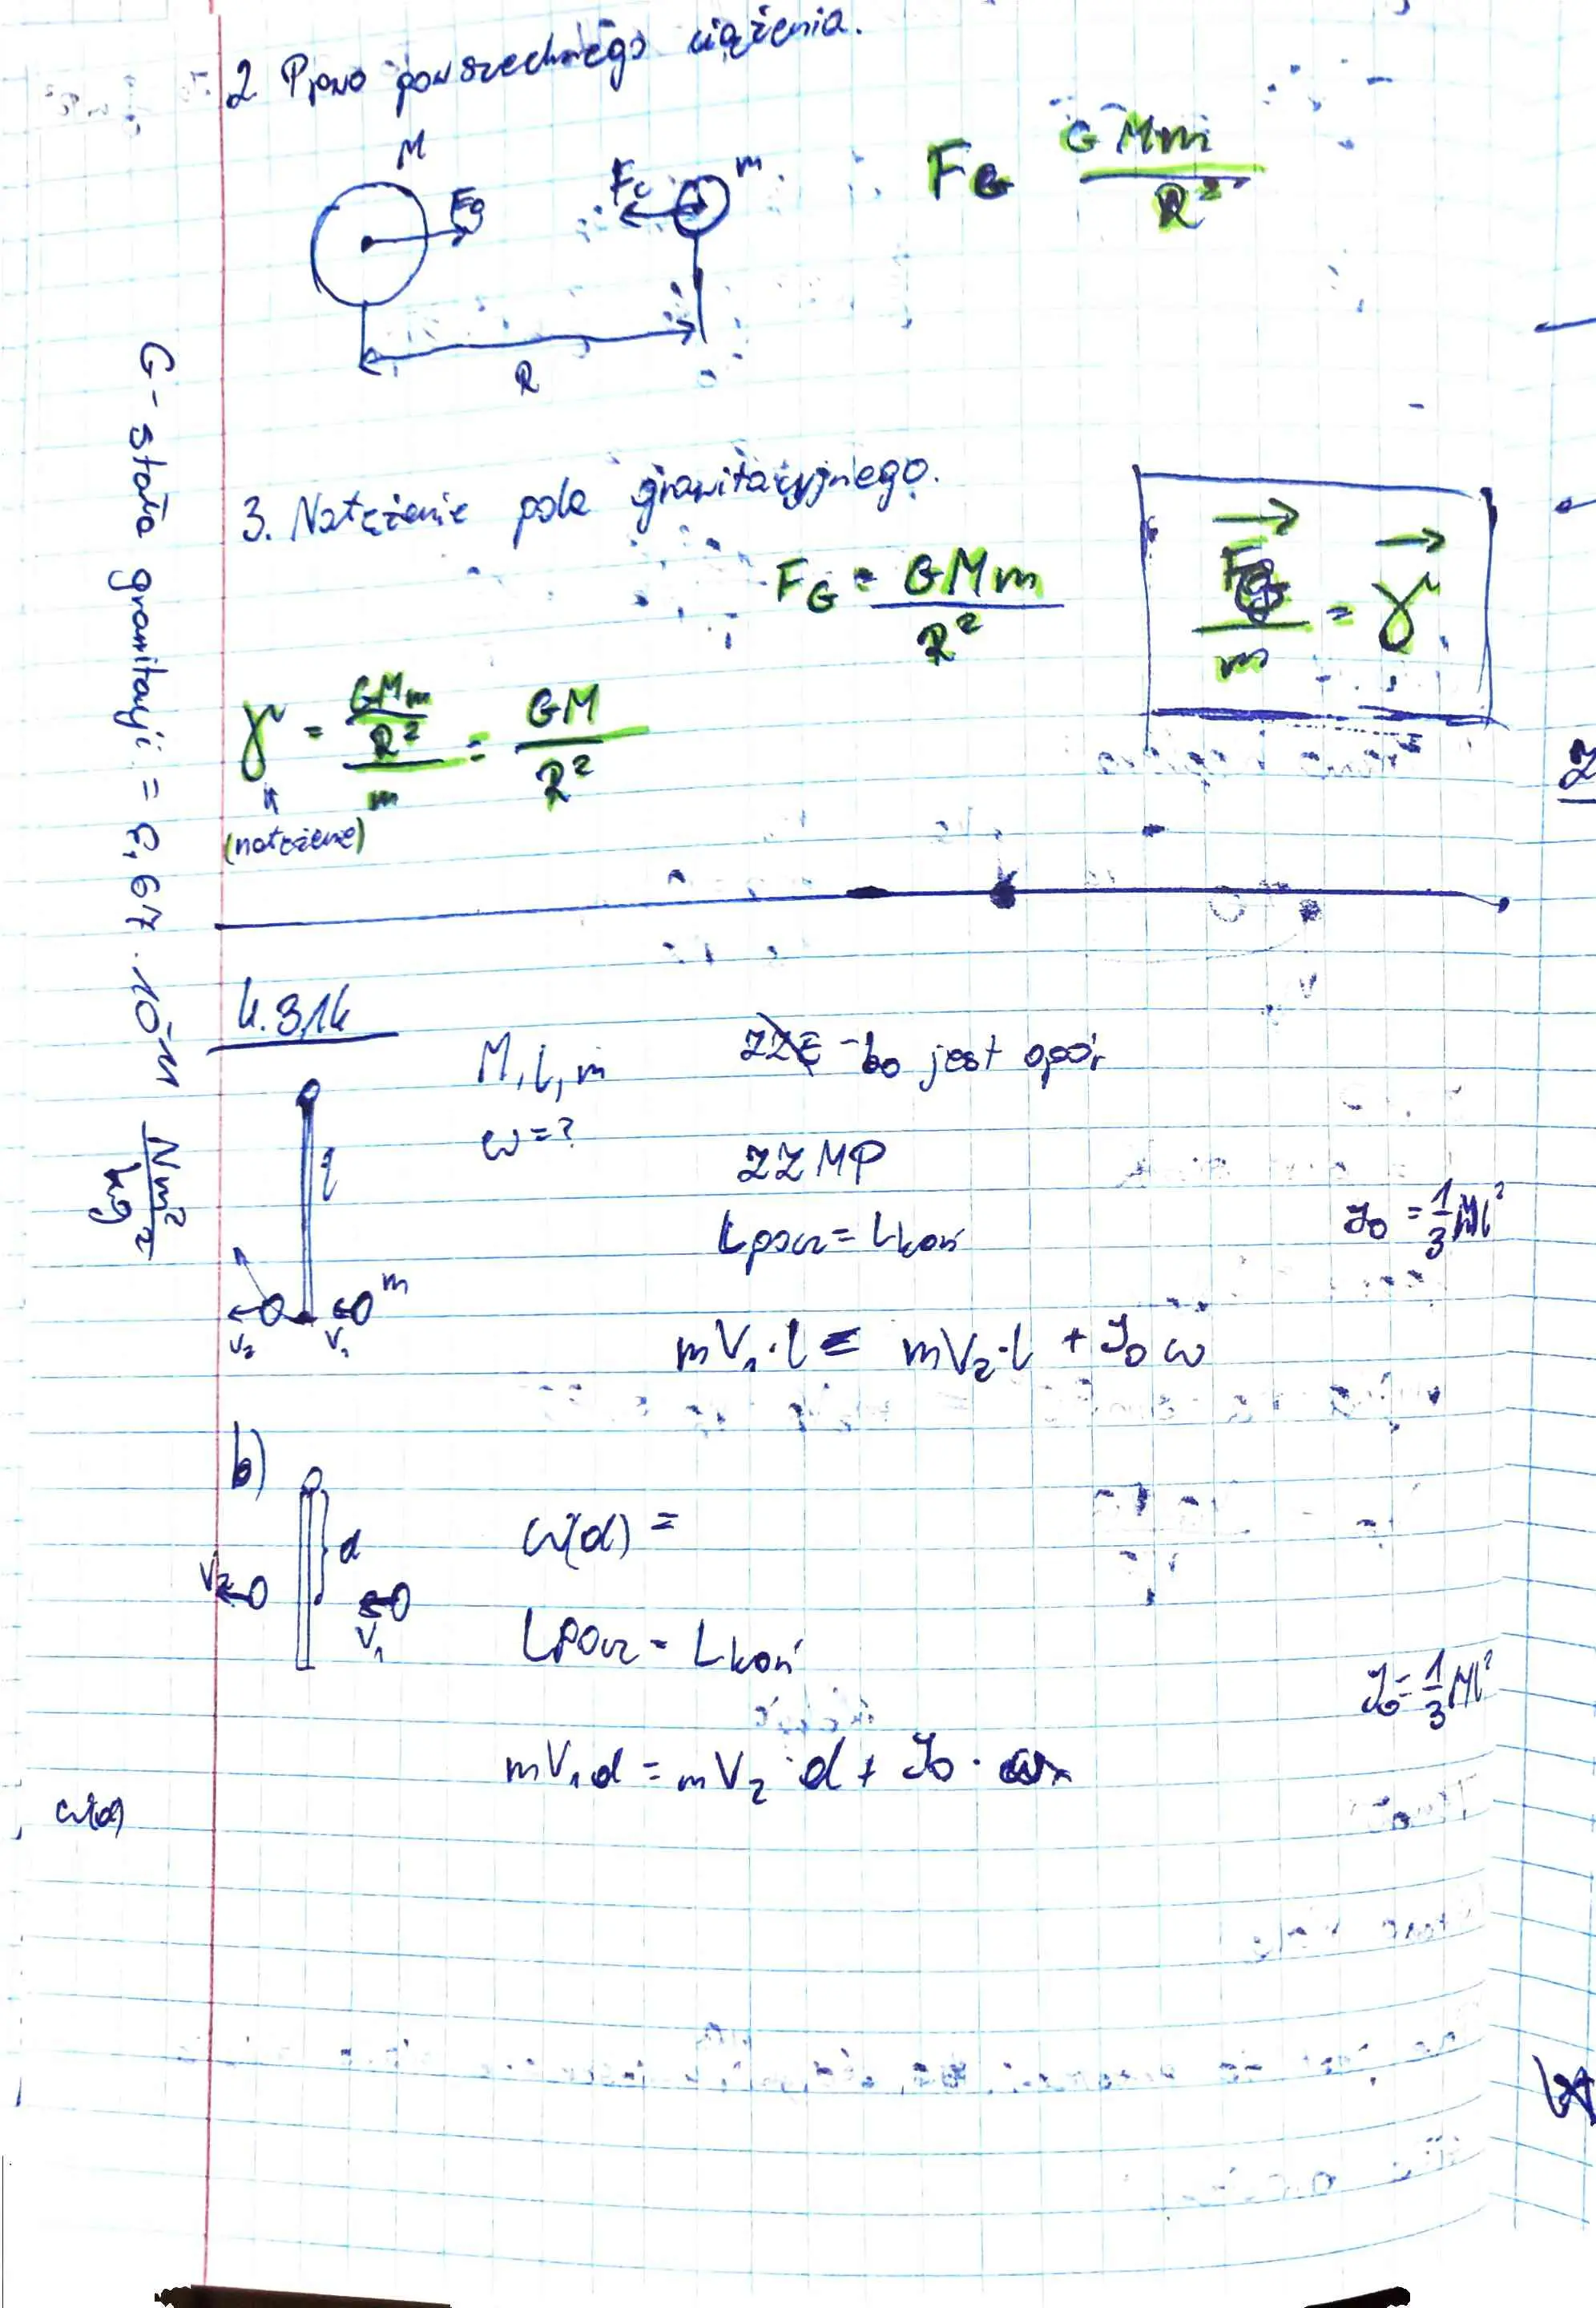 2 Prawo powszechnego ciążenia.
M
Fg
Fc
m
R
FG GMm / R²
G - stała grawitacji = 6,67 · 10⁻¹¹ Nm² / kg²
3. Natężenie pola grawitacyjnego.
FG = GMm / R²
Fg / m = γ
γ = GMm / R² / m = GM / R²
(natężenie)
4.314
M, l, m
ω = ?
ZZE - bo jest opór
l
ZZMP
Lpocz = Lkoń
J₀ = 1/3 Ml²
m
V₂ V₁
mV₁·l = mV₂·l + J₀ω
b)
d
V₂
V₁
ω(d) =
Lpocz = Lkoń
J₀ = 1/3 Ml²
mV₁d = mV₂·d + J₀·ω
ω(d)